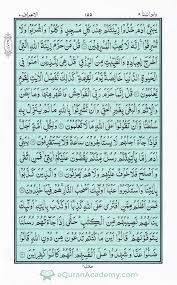 ولو اننا ٨ ١٥٥ الاعراف ٧
يٰبَنِيْٓ اٰدَمَ خُذُوْا زِيْنَتَكُمْ عِنْدَ كُلِّ مَسْجِدٍ وَّكُلُوْا وَاشْرَبُوْا وَلَا
تُسْرِفُوْا اِنَّهٗ لَا يُحِبُّ الْمُسْرِفِيْنَ قُلْ مَنْ حَرَّمَ زِيْنَةَ اللّٰهِ الَّتِيْٓ
اَخْرَجَ لِعِبَادِهٖ وَالطَّيِّبٰتِ مِنَ الرِّزْقِ قُلْ هِيَ لِلَّذِيْنَ اٰمَنُوْا فِي
الْحَيٰوةِ الدُّنْيَا خَالِصَةً يَّوْمَ الْقِيٰمَةِ كَذٰلِكَ نُفَصِّلُ الْاٰيٰتِ
لِقَوْمٍ يَّعْلَمُوْنَ قُلْ اِنَّمَا حَرَّمَ رَبِّيَ الْفَوَاحِشَ مَا ظَهَرَ مِنْهَا
وَمَا بَطَنَ وَالْاِثْمَ وَالْبَغْيَ بِغَيْرِ الْحَقِّ وَاَنْ تُشْرِكُوْا بِاللّٰهِ مَا لَمْ يُنَزِّلْ بِهٖ
سُلْطٰنًا وَّاَنْ تَقُوْلُوْا عَلَى اللّٰهِ مَا لَا تَعْلَمُوْنَ وَلِكُلِّ اُمَّةٍ
اَجَلٌ فَاِذَا جَآءَ اَجَلُهُمْ لَا يَسْتَاْخِرُوْنَ سَاعَةً وَّلَا يَسْتَقْدِمُوْنَ
يٰبَنِيْٓ اٰدَمَ اِمَّا يَاْتِيَنَّكُمْ رُسُلٌ مِّنْكُمْ يَقُصُّوْنَ عَلَيْكُمْ اٰيٰتِيْ فَمَنِ اتَّقٰى
وَاَصْلَحَ فَلَا خَوْفٌ عَلَيْهِمْ وَلَا هُمْ يَحْزَنُوْنَ وَالَّذِيْنَ كَذَّبُوْا بِاٰيٰتِنَا
وَاسْتَكْبَرُوْا عَنْهَآ اُولٰٓئِكَ اَصْحٰبُ النَّارِ هُمْ فِيْهَا خٰلِدُوْنَ فَمَنْ
اَظْلَمُ مِمَّنِ افْتَرٰى عَلَى اللّٰهِ كَذِبًا اَوْ كَذَّبَ بِاٰيٰتِهٖ اُولٰٓئِكَ
يَنَالُهُمْ نَصِيْبُهُمْ مِّنَ الْكِتٰبِ حَتّٰىٓ اِذَا جَآءَتْهُمْ رُسُلُنَا
يَتَوَفَّوْنَهُمْ قَالُوْٓا اَيْنَ مَا كُنْتُمْ تَدْعُوْنَ مِنْ دُوْنِ اللّٰهِ قَالُوْا
eQuranAcademy.com